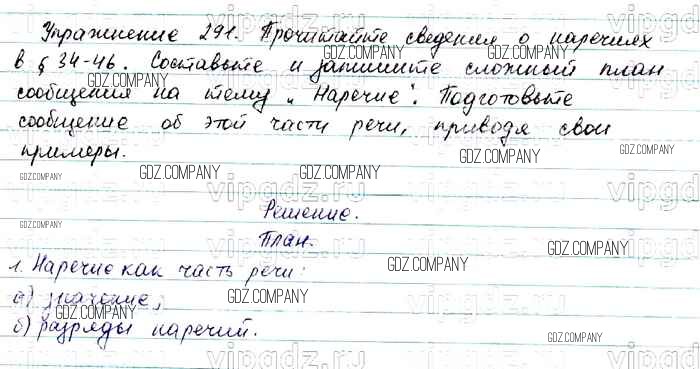 Упражнение 291. Прочитайте сведения о наречиях
в § 34-46. Составьте и запишите сложный план
сообщения на тему „Наречие". Подготовьте
сообщение об этой части речи, приводя свои
примеры.
Решение.
План.
1. Наречие как часть речи:
а) значение,
б) разряды наречий.
GDZ.COMPANY
vipgdz.ru